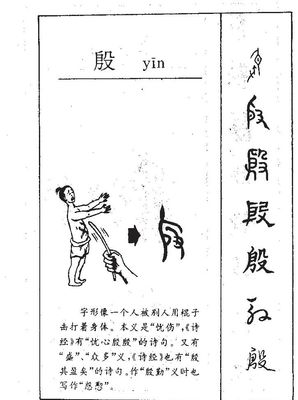 殷 yīn
字形像一个人被别人用棍子
击打着身体。本义是“忧伤”，《诗
经》有“忧心殷殷”的诗句。又有
“盛”、“众多”义，《诗经》也有“殷
其盈矣”的诗句。作“殷勤”义时也
写作“慇懃”。
殷
殷
殷
殷